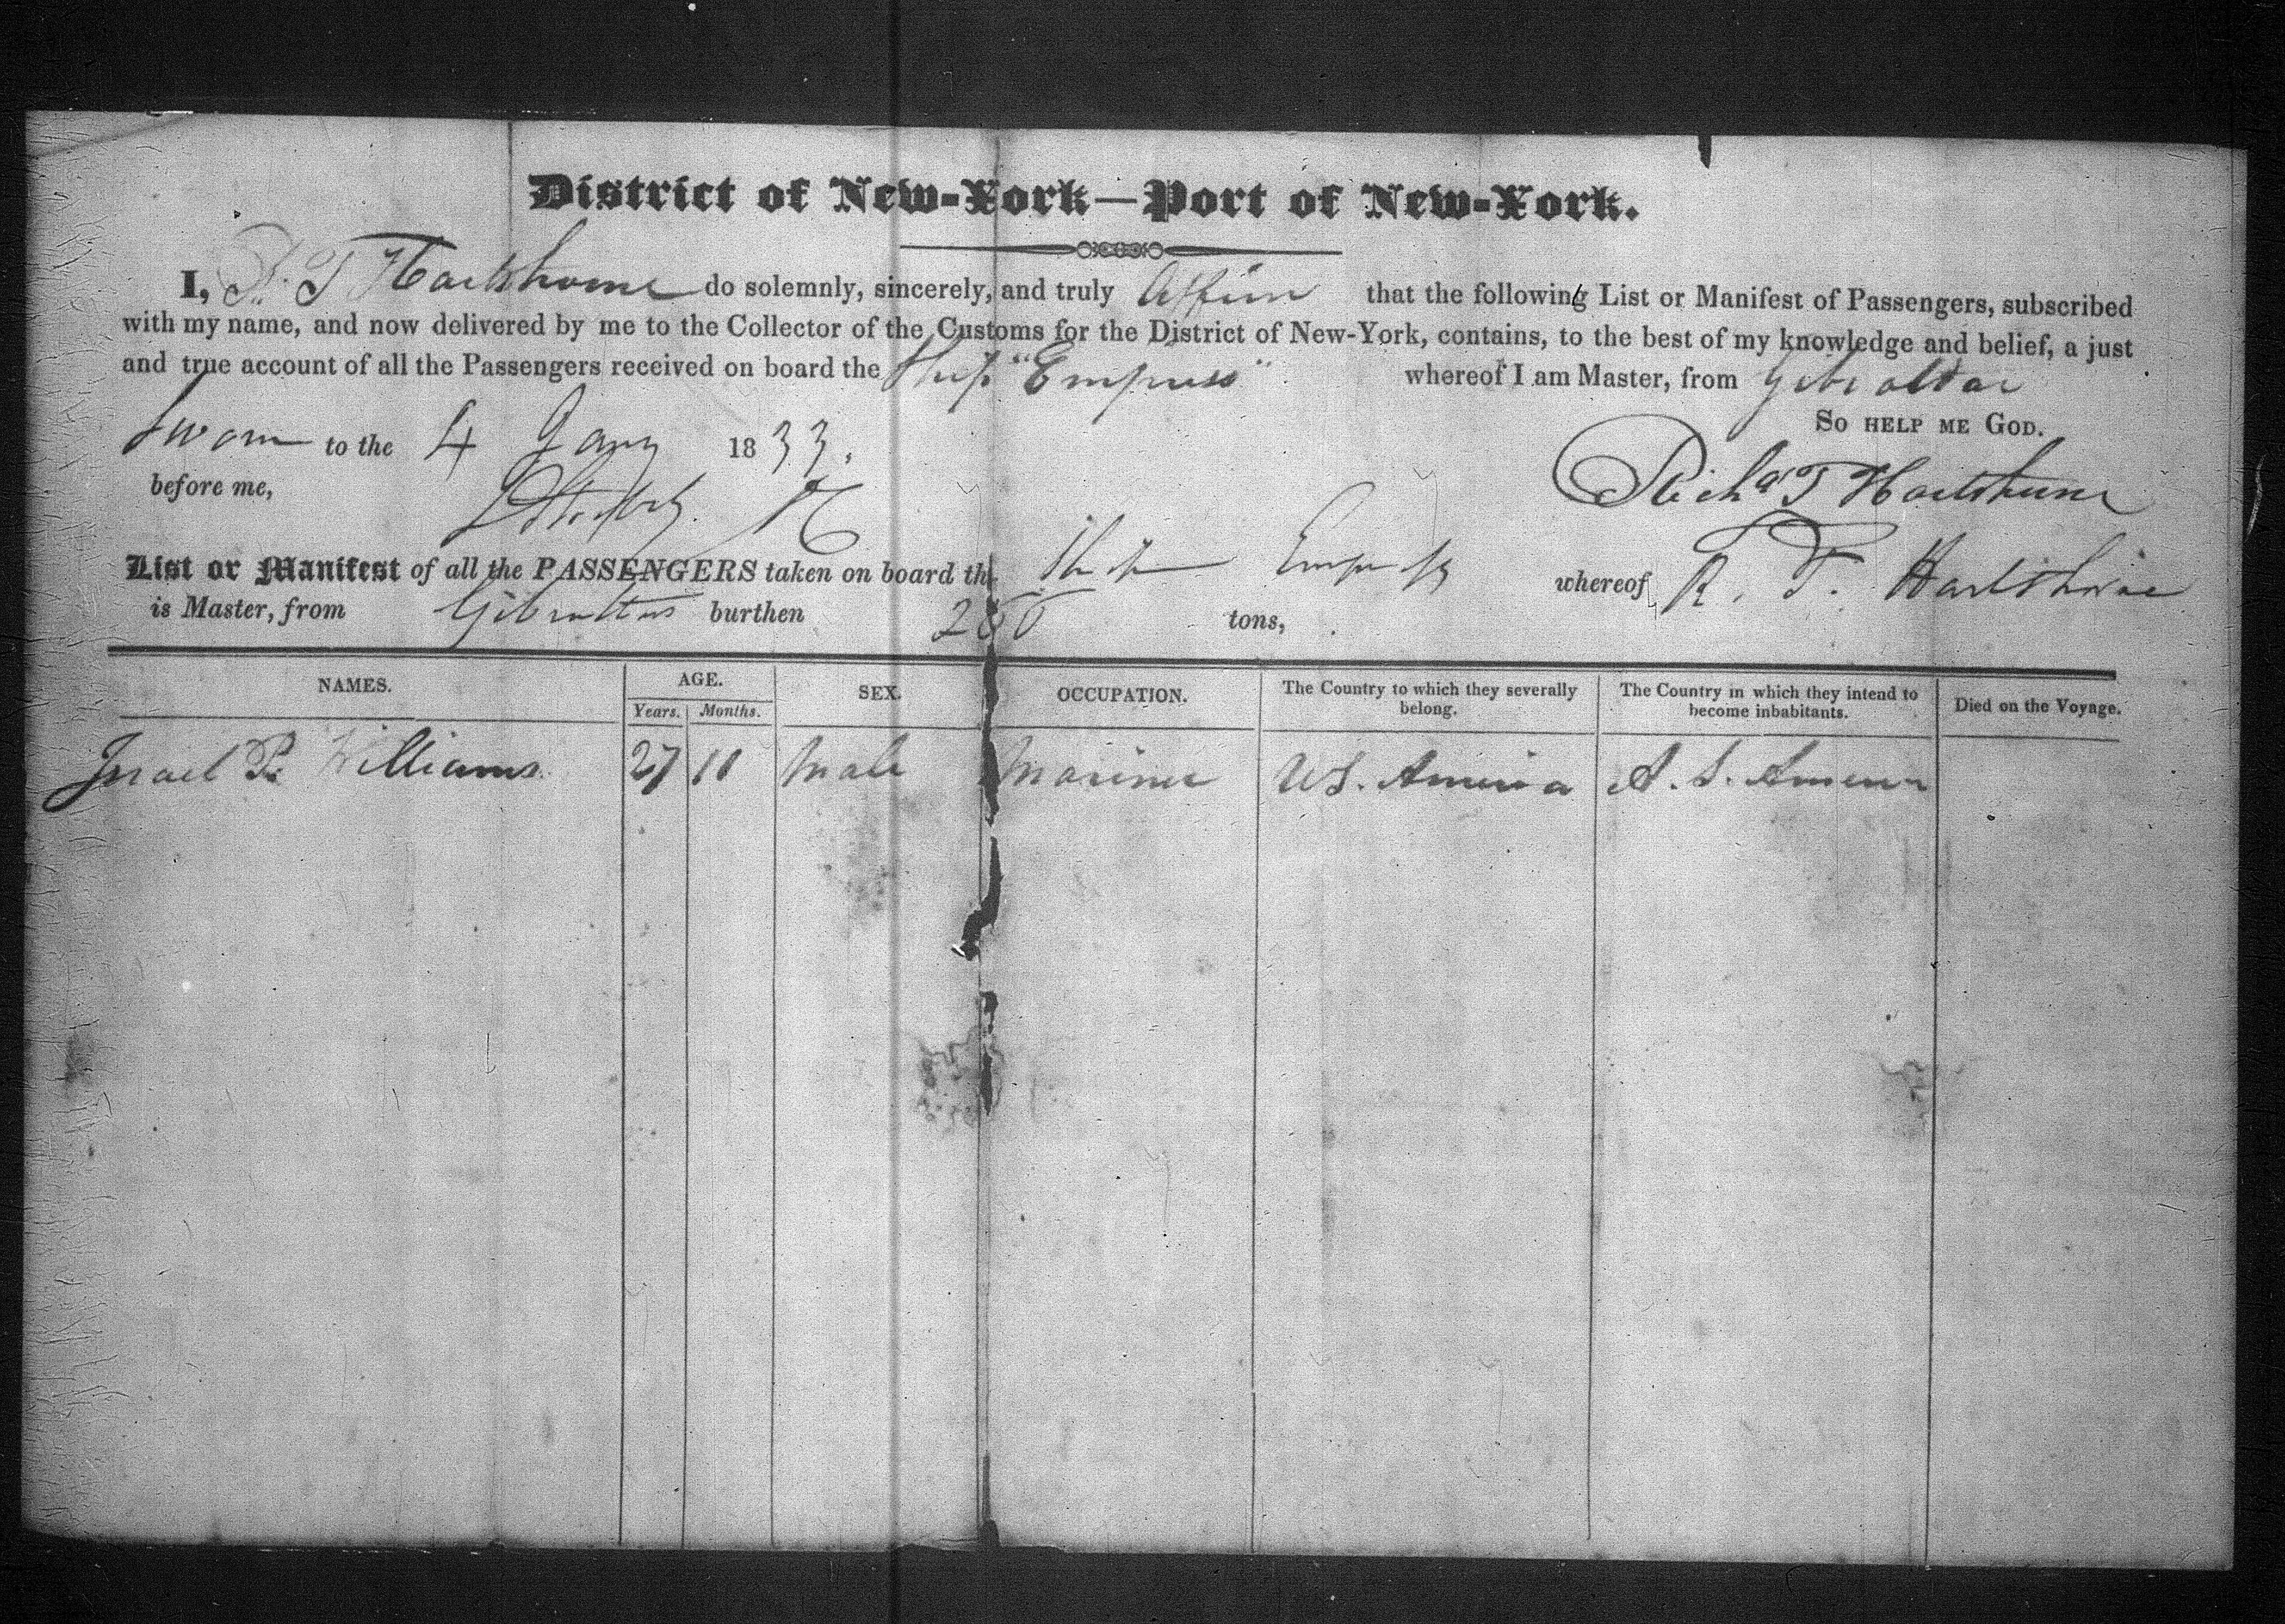 District of New-York—Port of New-York.
I, R. T Hartshorne do solemnly, sincerely, and truly Affirm that the following List or Manifest of Passengers, subscribed
with my name, and now delivered by me to the Collector of the Customs for the District of New-York, contains, to the best of my knowledge and belief, a just
and true account of all the Passengers received on board the Ship "Empress" whereof I am Master, from Gibraltar
So help me God.
Sworn to the 4 Jany 1833.
before me,
Richd T Hartshorne
List or Manifest of all the PASSENGERS taken on board the Ship Empress whereof R. T. Hartshorne
is Master, from Gibraltar burthen tons,
NAMES. AGE. Years. Months. SEX. OCCUPATION. The Country to which they severally belong. The Country in which they intend to become inhabitants. Died on the Voyage.
Israel P. Williams 27 10 Male Mariner US. America U. S. America